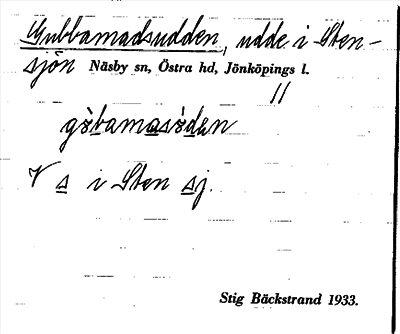 Gubbamadsudden, udde i Sten-
sjön Näsby sn, Östra hd, Jönköpings l.
11
V s i Sten sj.
Stig Bäckstrand 1933.